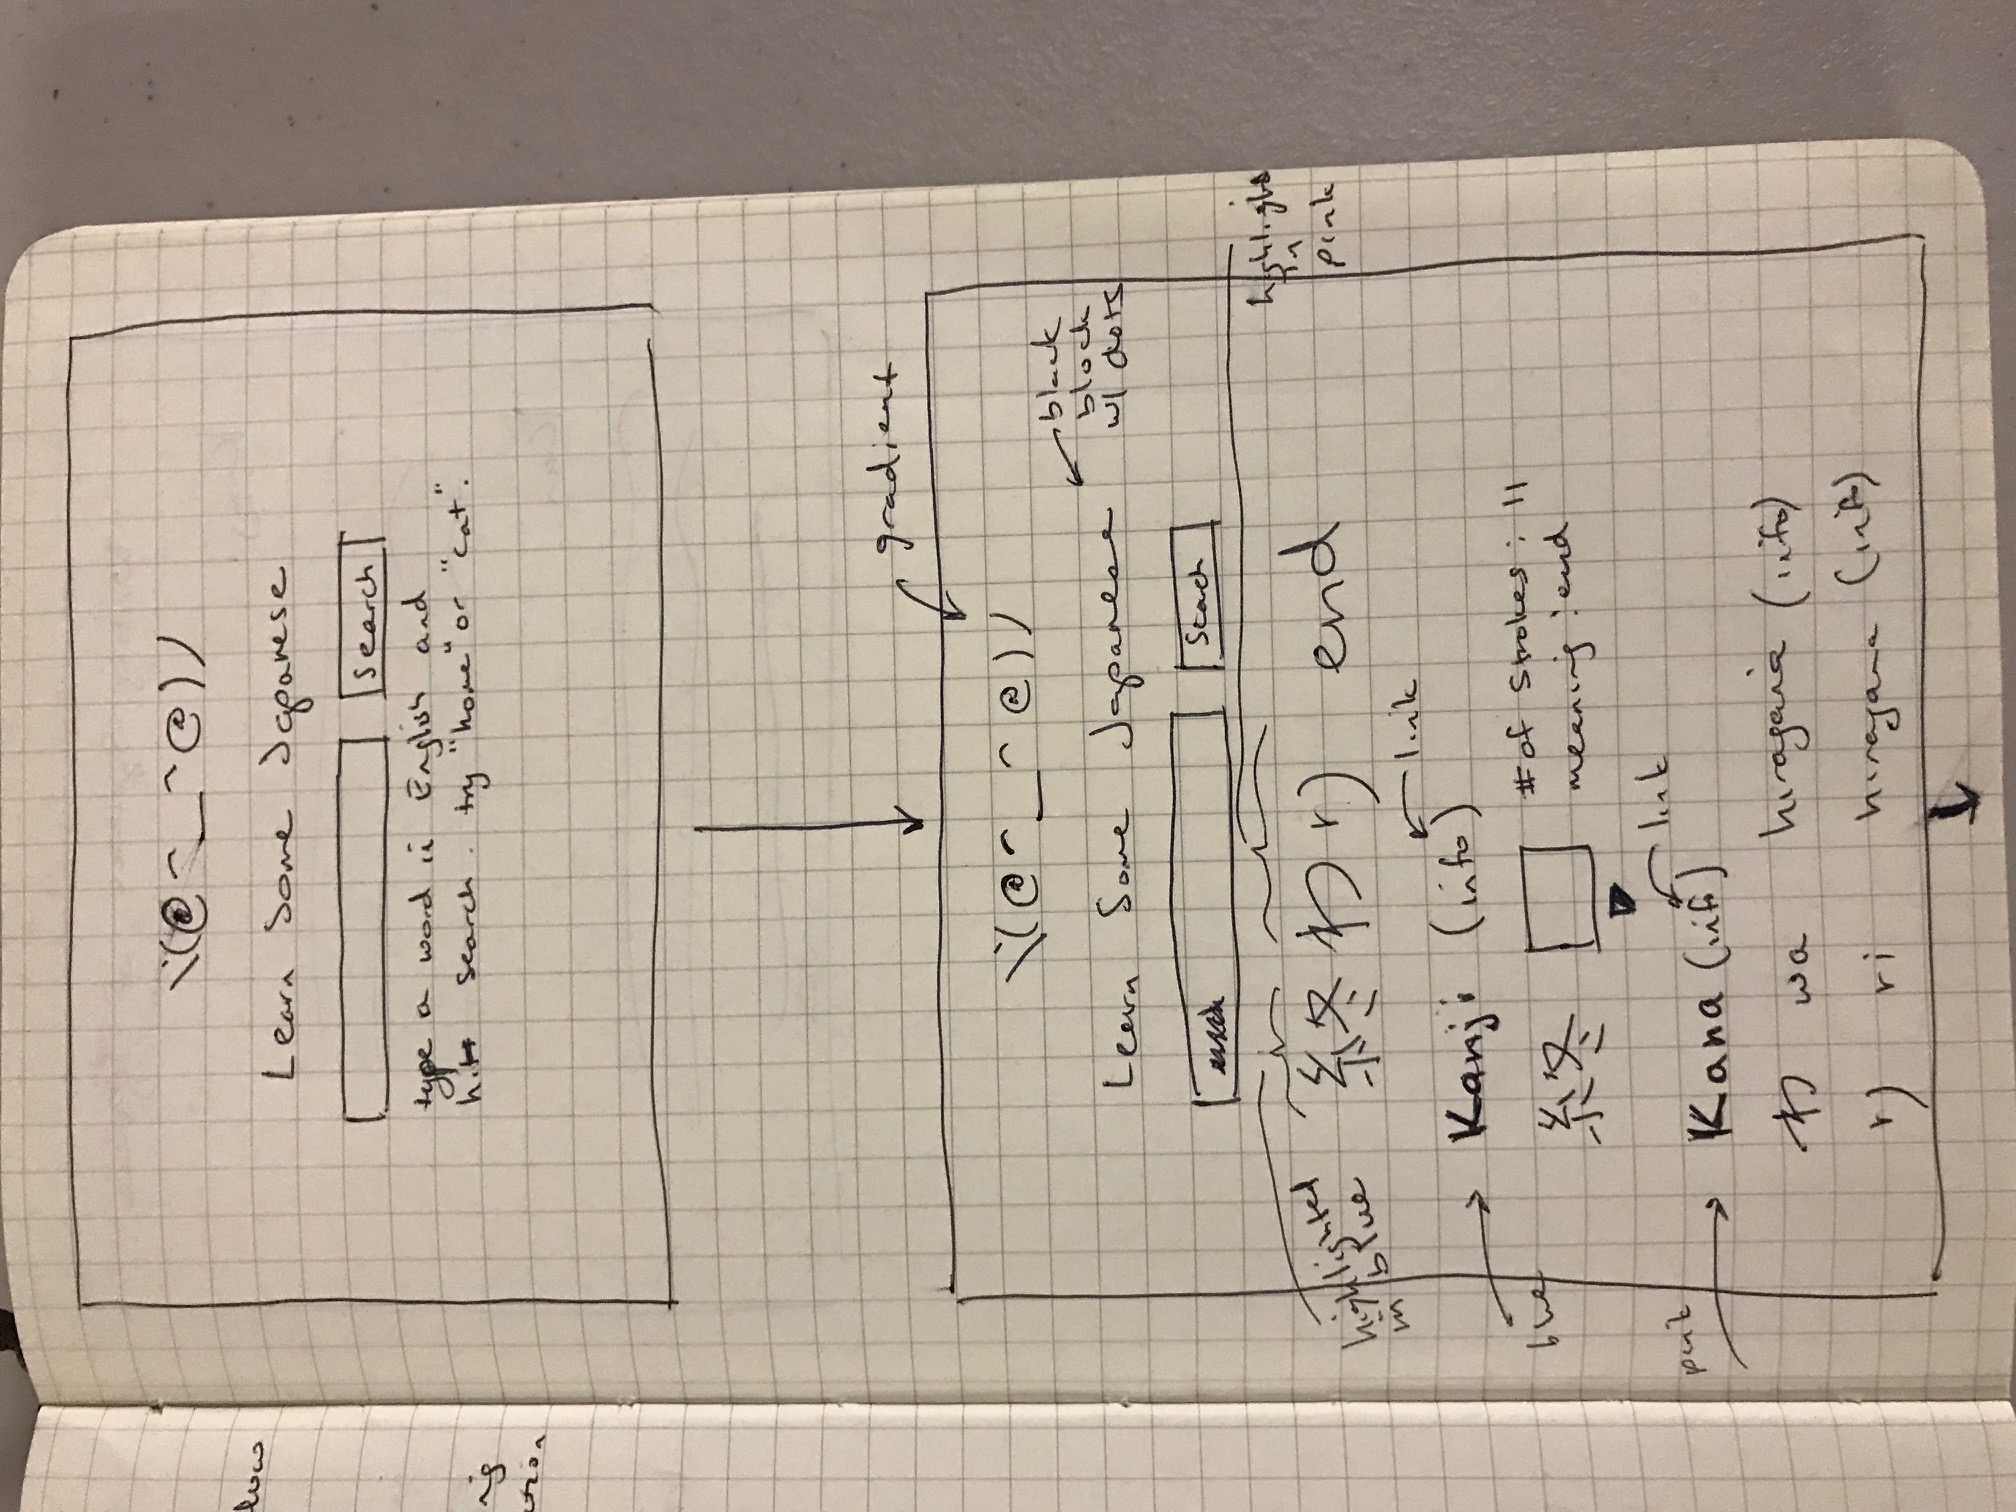 low
ng
ution
\(@^_^@)/
Learn Some Japanese
Search
type a word in English and
hit search. try "home" or "cat".
gradient
\(@^_^@)/
black
block
w/ dots
Learn Some Japanese
Search
highlighted
in blue
highlight
in
pink
終わり end
link
Kanji (info)
blue
終
# of strokes: 11
meaning: end
link
pink
Kana (info)
わ wa hiragana (info)
り ri hiragana (info)